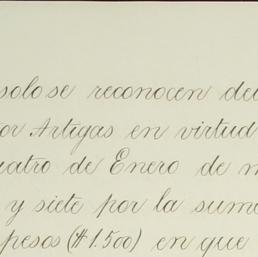 solo se reconocen de
or Artigas en virtud
uatro de Enero de
y siete por la suma
pesos ($1.500) en que